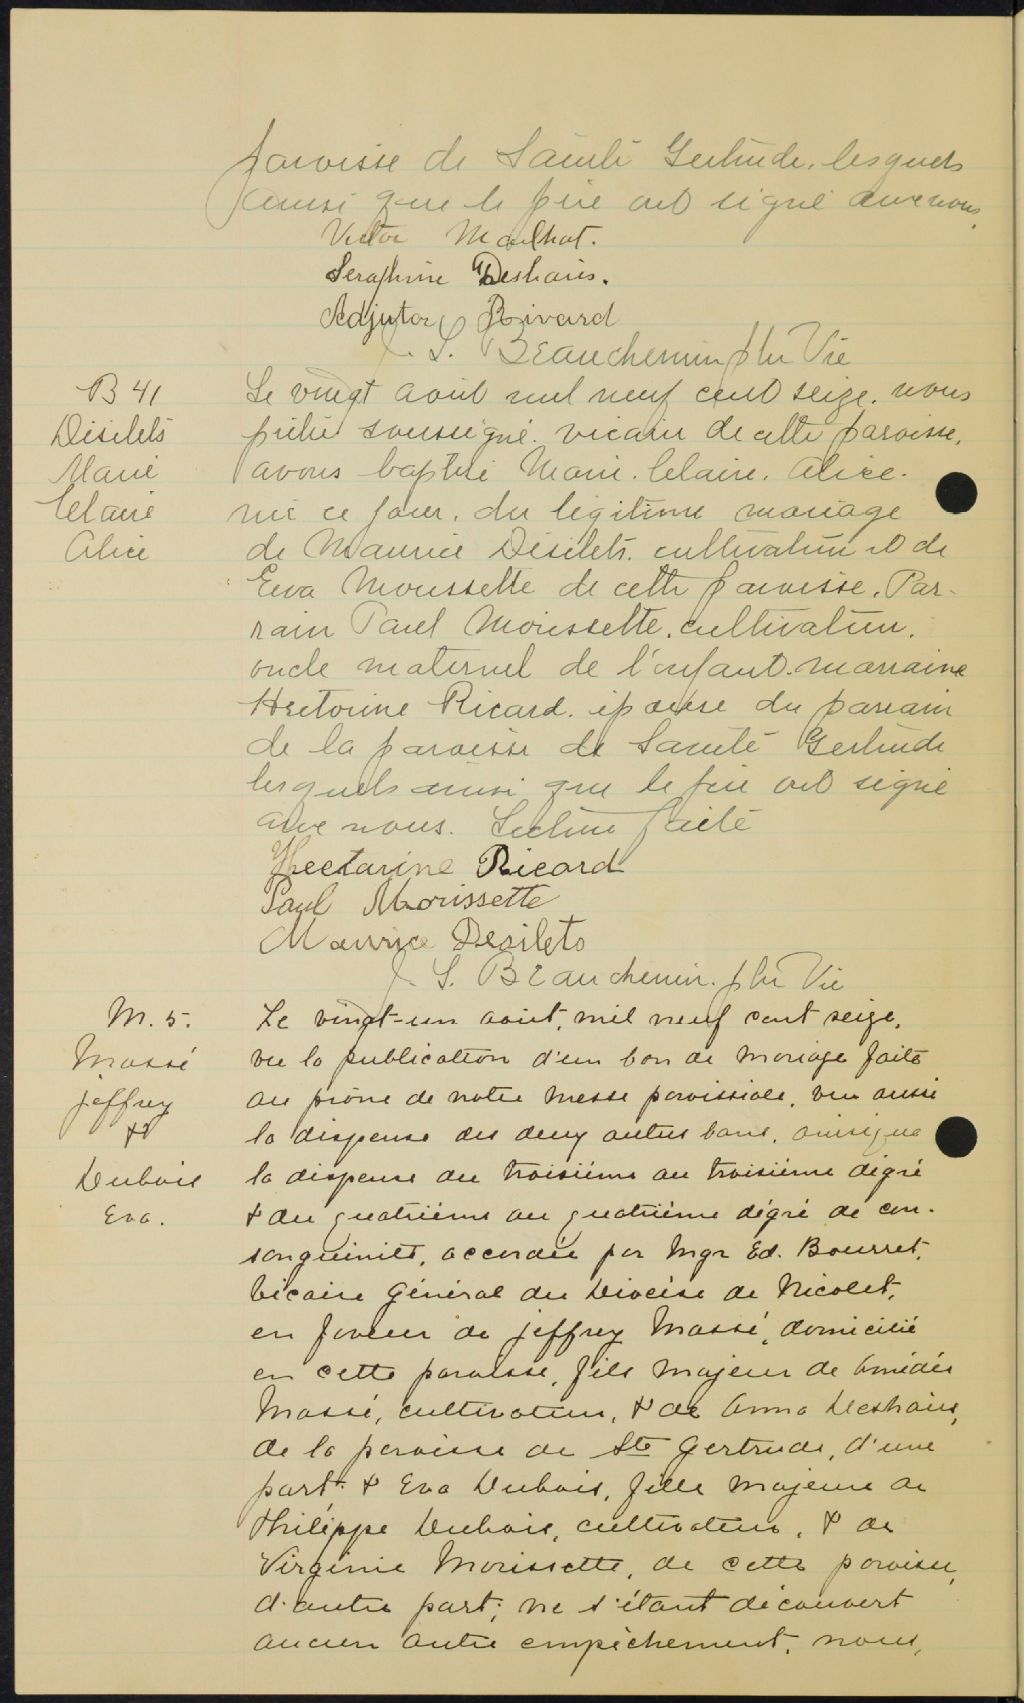 paroisse de Sainte Gertrude, lesquels
ainsi que le père ont signé avec nous
Victor Mailhot.
Seraphine Deshaies.
Adjutor Rivard
J. S. Beauchemin ptre Vic
B 41
Désilets
Marie
Claire
Alice
Le vingt août mil neuf cent seize, nous
prêtre soussigné, vicaire de cette paroisse,
avons baptisé Marie. Claire. Alice.
née ce jour, du légitime mariage
de Maurice Désilets. cultivateur et de
Eva Moussette de cette paroisse. Par-
rain Paul Morissette, cultivateur.
oncle maternel de l'enfant. marraine
Ricard. épouse du parrain
de la paroisse de Sainte Gertrude
lesquels ainsi que le père ont signé
avec nous. Lecture faite
Nectarine Ricard
Paul Morissette
Maurice Desilets
J. S. Beauchemin. ptre Vic
M. 5.
Massé
Jeffrey
&
Dubois
Eva.
Le vingt-un août, mil neuf cent seize,
vu la publication d'un ban de mariage faite
au prône de notre messe paroissiale, vu aussi
la dispense des deux autres bans, ainsi que
la dispense du troisième au troisième dégré
& du quatrième au quatrième dégré de con-
sanguinité, accordée par Mgr Ed. Bourret,
Vicaire Général du Diocèse de Nicolet,
en faveur de Jeffrey Massé, domicilié
en cette paroisse, fils majeur de Amédée
Massé, cultivateur, & de Anna Deshaies,
de la paroisse de Ste Gertrude, d'une
part: & Eva Dubois, fille majeure de
Philippe Dubois, cultivateur, & de
Virginie Morissette, de cette paroisse,
d'autre part; ne s'étant découvert
aucun autre empêchement, nous,